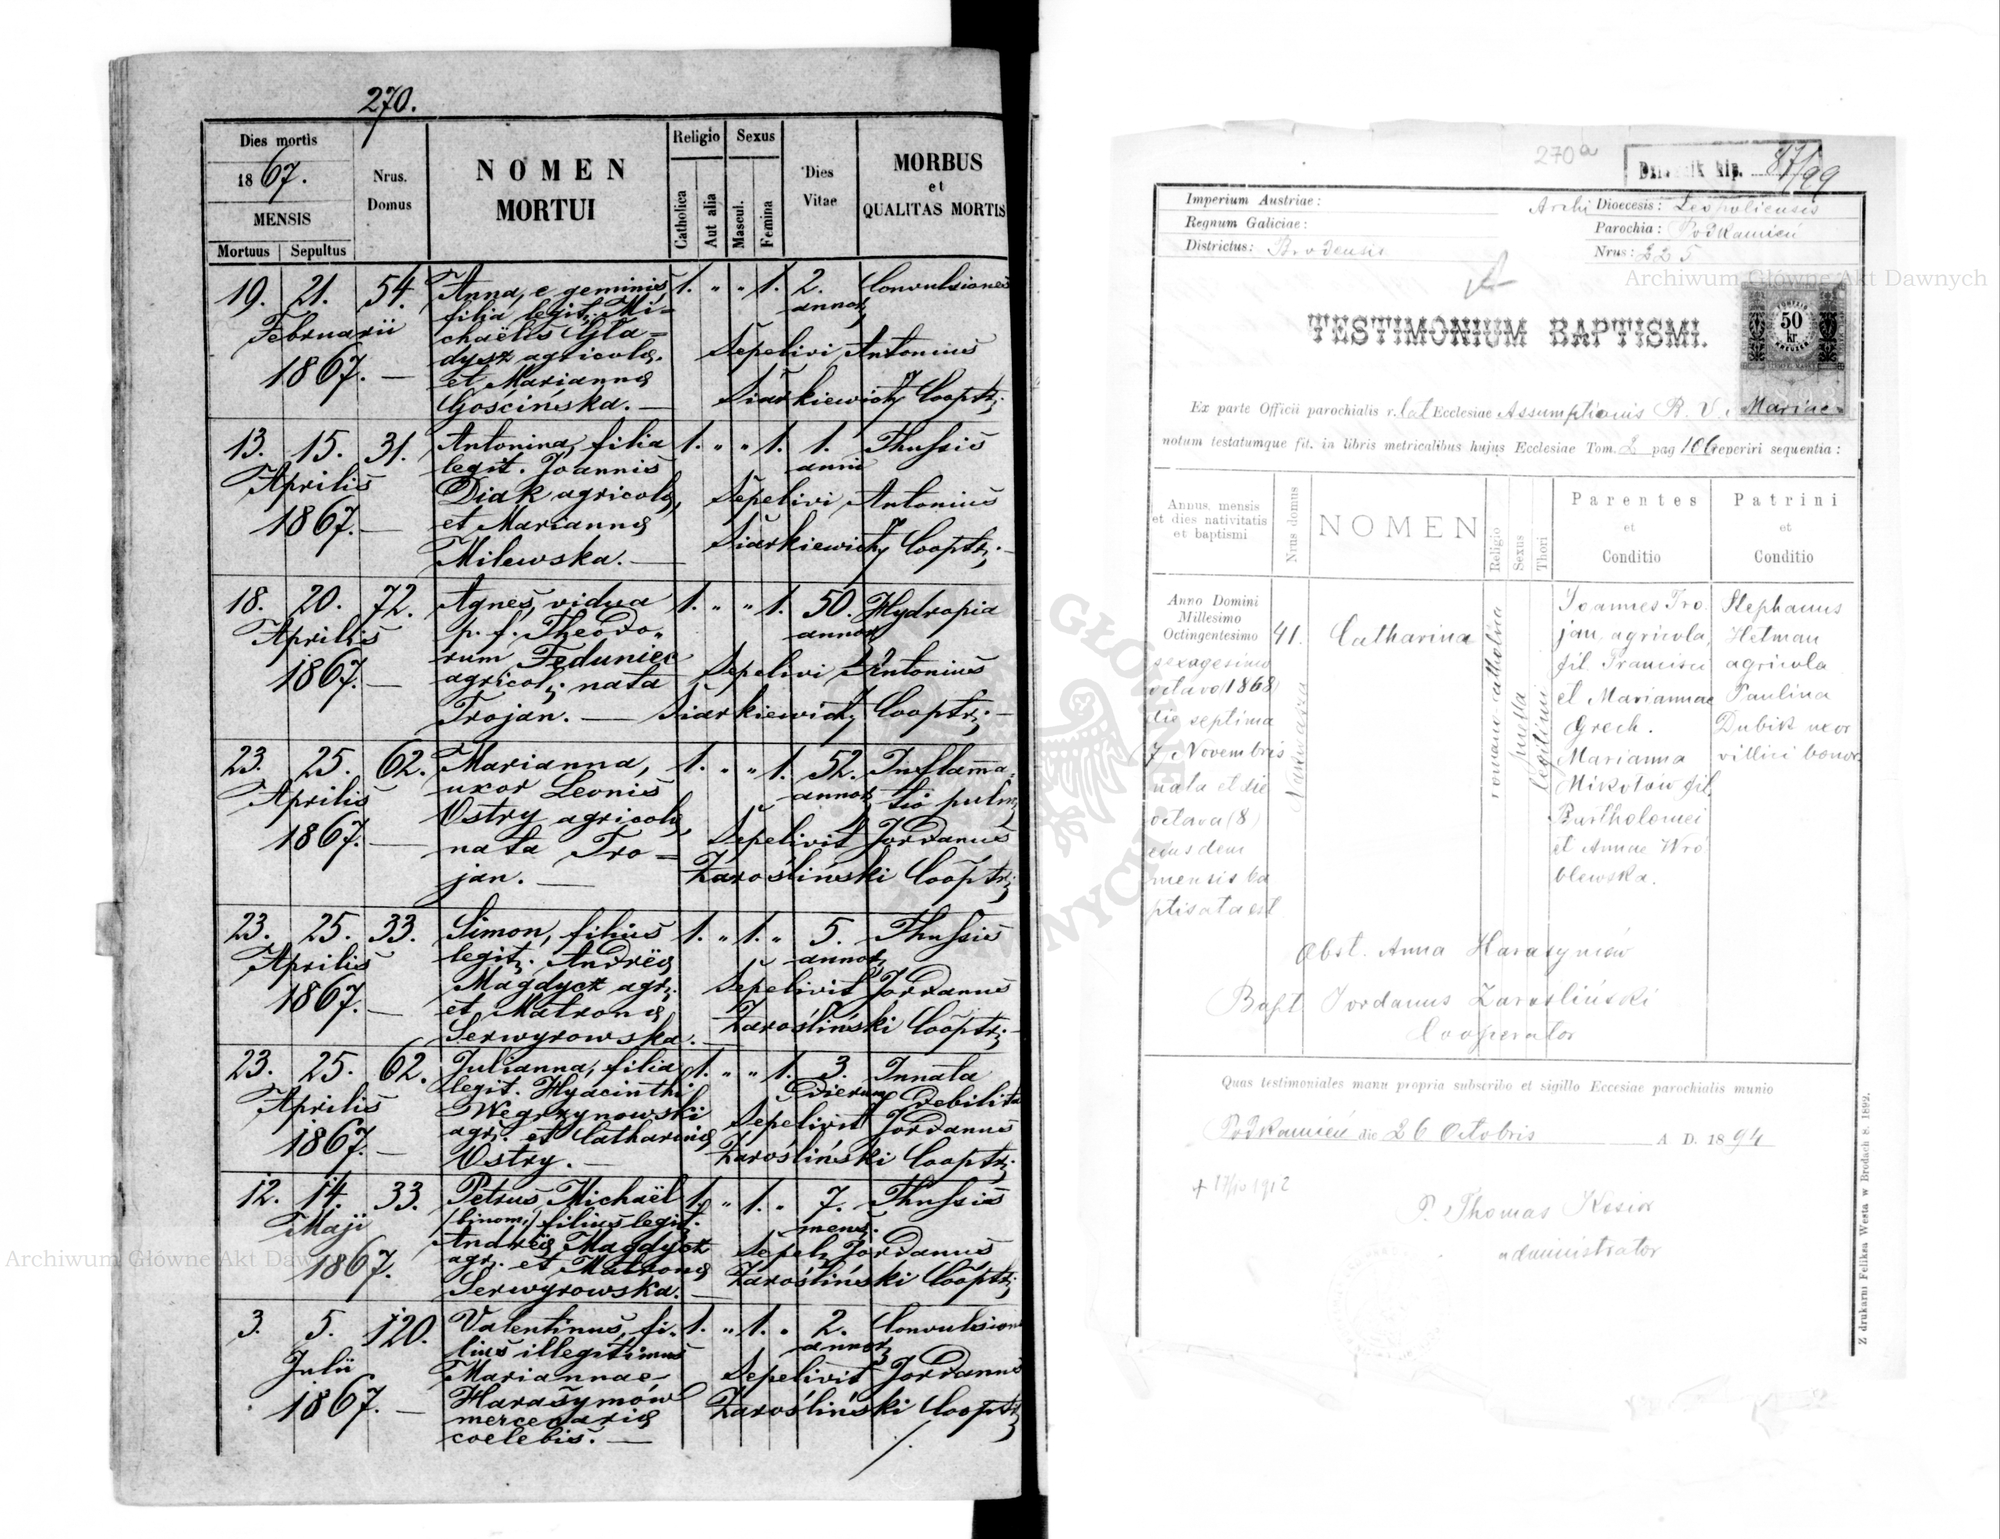 270.
Dies mortis
1867.
MENSIS
Mortuus Sepultus
Nrus. Domus
NOMEN MORTUI
Religio
Catholica
Aut alia
Sexus
Mascul.
Femina
Dies Vitae
MORBUS
et
QUALITAS MORTIS
19. 21. 54. Anna, e geminis, 1. " " 1. 2. Convulsiones
filia legit. Mi- annor.
Februarii chaëlis Gła-
dysz agricolae Sepelivi Antonius
1867. — et Mariannae
Gościńska. — Siarkiewicz Cooptr.
13. 15. 31. Antonina, filia 1. " " 1. 1. Thussis
legit. Joannis anni
Aprilis Diak agricolae, Sepelivi Antonius
1867. — et Mariannae Siarkiewicz Cooptr. —
Milewska. —
18. 20. 72. Agnes, vidua 1. " " 1. 50. Hydropia
Aprilis p. f. Theodo- annor.
rum Feduniec Sepelivi Antonius
1867. — agricol. nata
Trojan. — Siarkiewicz Cooptr. —
23. 25. 62. Marianna, 1. " " 1. 52. Inflama-
Aprilis uxor Leonis annor. tio pulm.
Ostry agricolae, Sepelivit Jordanus
1867. — nata Tro-
jan. — Zarośliński Cooptr.
23. 25. 33. Simon, filius 1. " 1. " 5. Thussis
Aprilis legit. Andreae annor.
Magdycz agr. Sepelivit Jordanus
1867. — et Matronae
Serwyrowska. — Zarośliński Cooptr. —
23. 25. 62. Julianna, filia 1. " " 1. 3. Innata
legit. Hyacinthi dierum debilita
Aprilis Węgrzynowski
agr. et Catharinae Sepelivit Jordanus
1867. — Ostry. — Zarośliński Cooptr.
12. 14. 33. Petrus Michaël 1. " 1. " 7. Thussis
Maji (binom.) filius legit. mens.
Andreae Magdycz Sepel. Jordanus
1867. agr. et Matronae
Serwyrowska. — Zarośliński Cooptr.
3. 5. 120. Valentinus, fi- 1. " 1. " 2. Convulsion
lius illegitimus annor.
Julii Mariannae Sepelivit Jordanus
1867. — Harasymów Zarośliński Cooptr.
mercenariae
coelebis. —
270a
Dziennik hip. 87/99
Imperium Austriae:
Regnum Galiciae:
Districtus: Brodensis
Archi Dioecesis: Leopoliensis
Parochia: Podkamień
Nrus: 225
TESTIMONIUM BAPTISMI.
50
kr.
Ex parte Officii parochialis r. lat Ecclesiae Assumptionis B. V. Mariae
notum testatumque fit, in libris metricalibus hujus Ecclesiae Tom. 2 pag 106 reperiri sequentia:
Annus, mensis
et dies nativitatis
et baptismi
Nrus domus
NOMEN
Religio
Sexus
Thori
Parentes
et
Conditio
Patrini
et
Conditio
Anno Domini
Millesimo
Octingentesimo
sexagesimo
octavo (1868)
die septima
7 Novembris
nata et die
octava (8)
ejusdem
mensis ba
ptisata est
41.
Catharina
romano catholica
puella
legitimi
Joannes Tro
jan, agricola,
fil. Francisci
et Mariannae
Grech.
Marianna
Mikołów fil.
Bartholomei
et Annae Wró
blewska.
Stephanus
Hetman
agricola
Paulina
Dubik uxor
villici bonor.
Obst. Anna Harasymów
Bapt. Jordanus Zarośliński
Cooperator
Quas testimoniales manu propria subscribo et sigillo Eccesiae parochialis munio
Podkamień die 26 Octobris A D. 1894
P. Thomas Kosior
administrator
Z drukarni Feliksa Westa w Brodach 8. 1892.
Archiwum Główne Akt Dawnych
Archiwum Główne Akt Dawnych